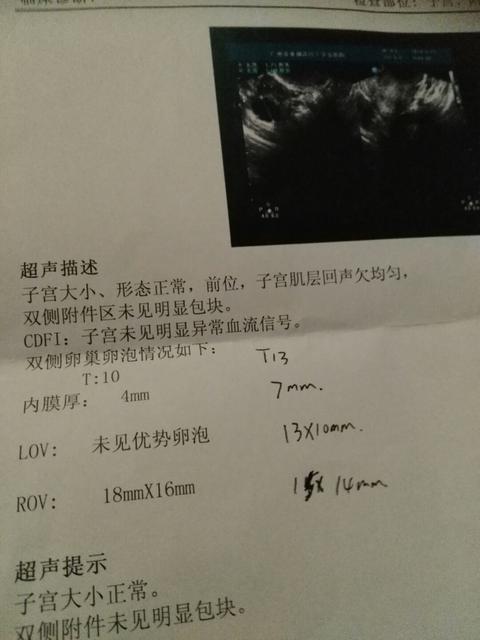 检查部位：子宫，
超声描述
子宫大小、形态正常，前位，子宫肌层回声欠均匀，
双侧附件区未见明显包块。
CDFI：子宫未见明显异常血流信号。
双侧卵巢卵泡情况如下： T13
T:10
内膜厚： 4mm 7mm.
LOV: 未见优势卵泡 13X10mm.
ROV: 18mmX16mm X 14mm
超声提示
子宫大小正常。
双侧附件未见明显包块。